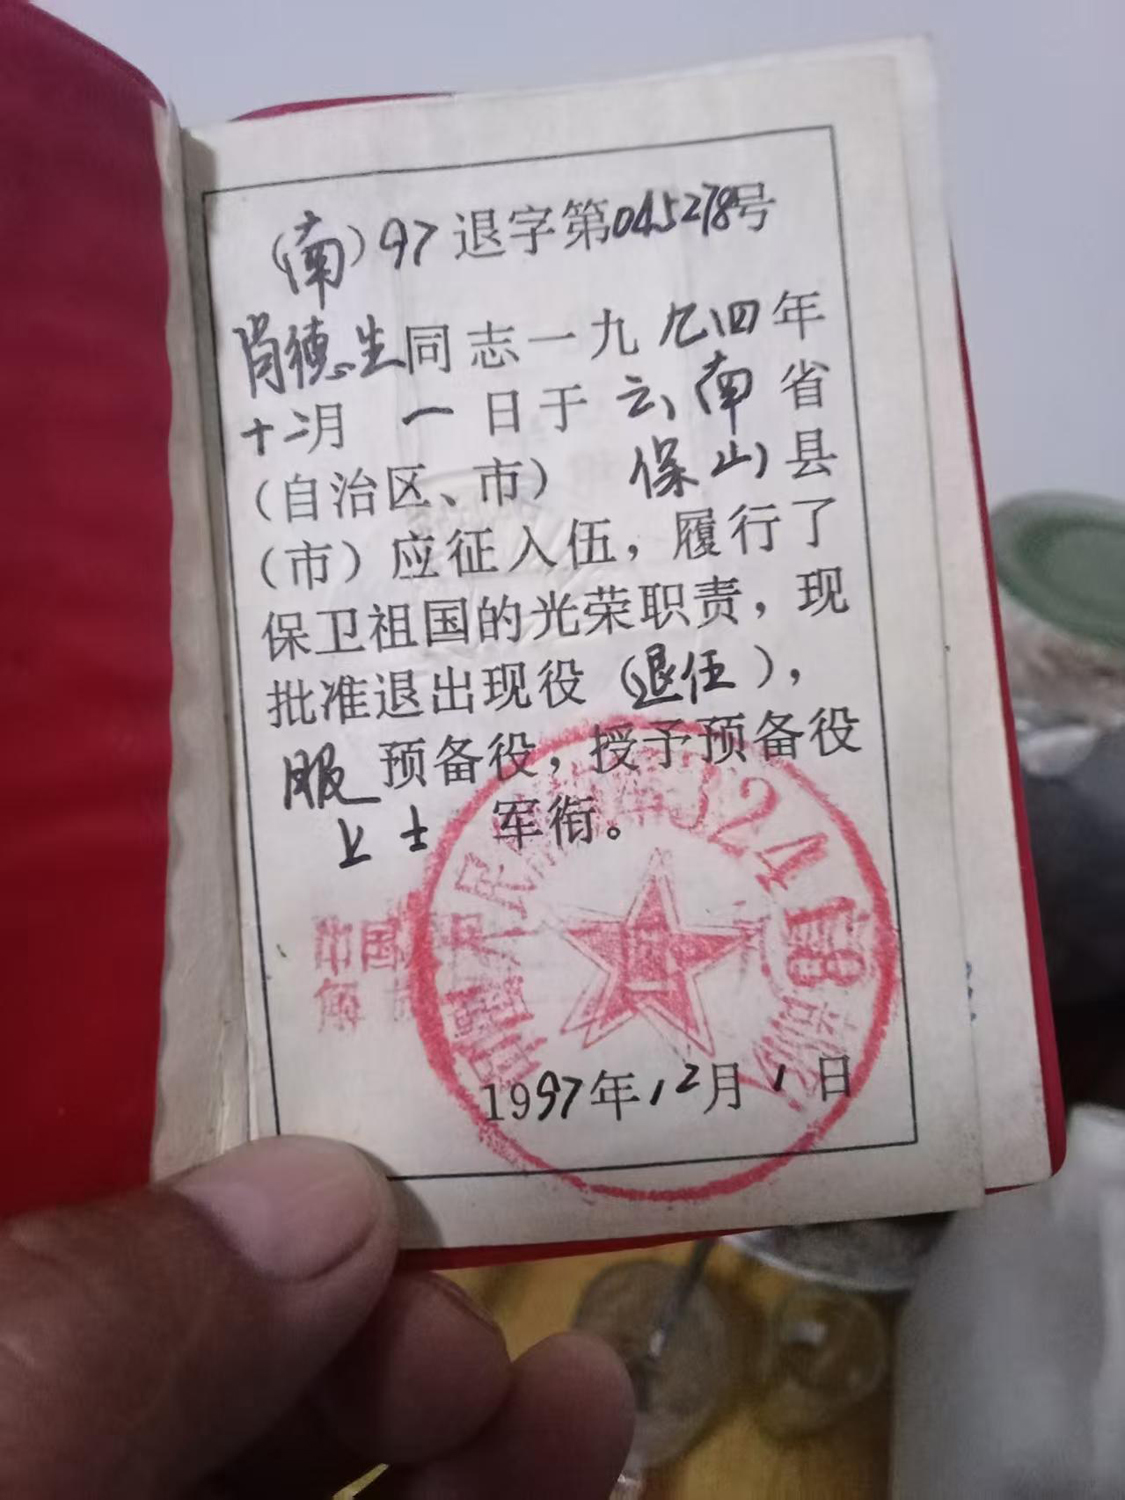 （南）97退字第045278号
肖德生同志一九九四年
十二月 一日于云南省
（自治区、市） 保山县
（市）应征入伍，履行了
保卫祖国的光荣职责，现
批准退出现役（退伍），
服预备役，授予预备役
上士 军衔。
1997年12月1日